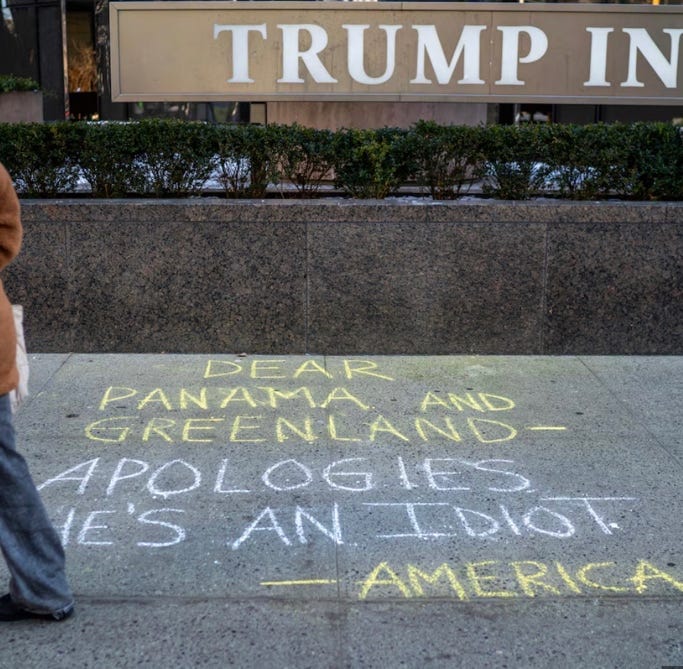 TRUMP IN
DEAR
PANAMA AND
GREENLAND—
APOLOGIES.
HE'S AN IDIOT
— AMERICA